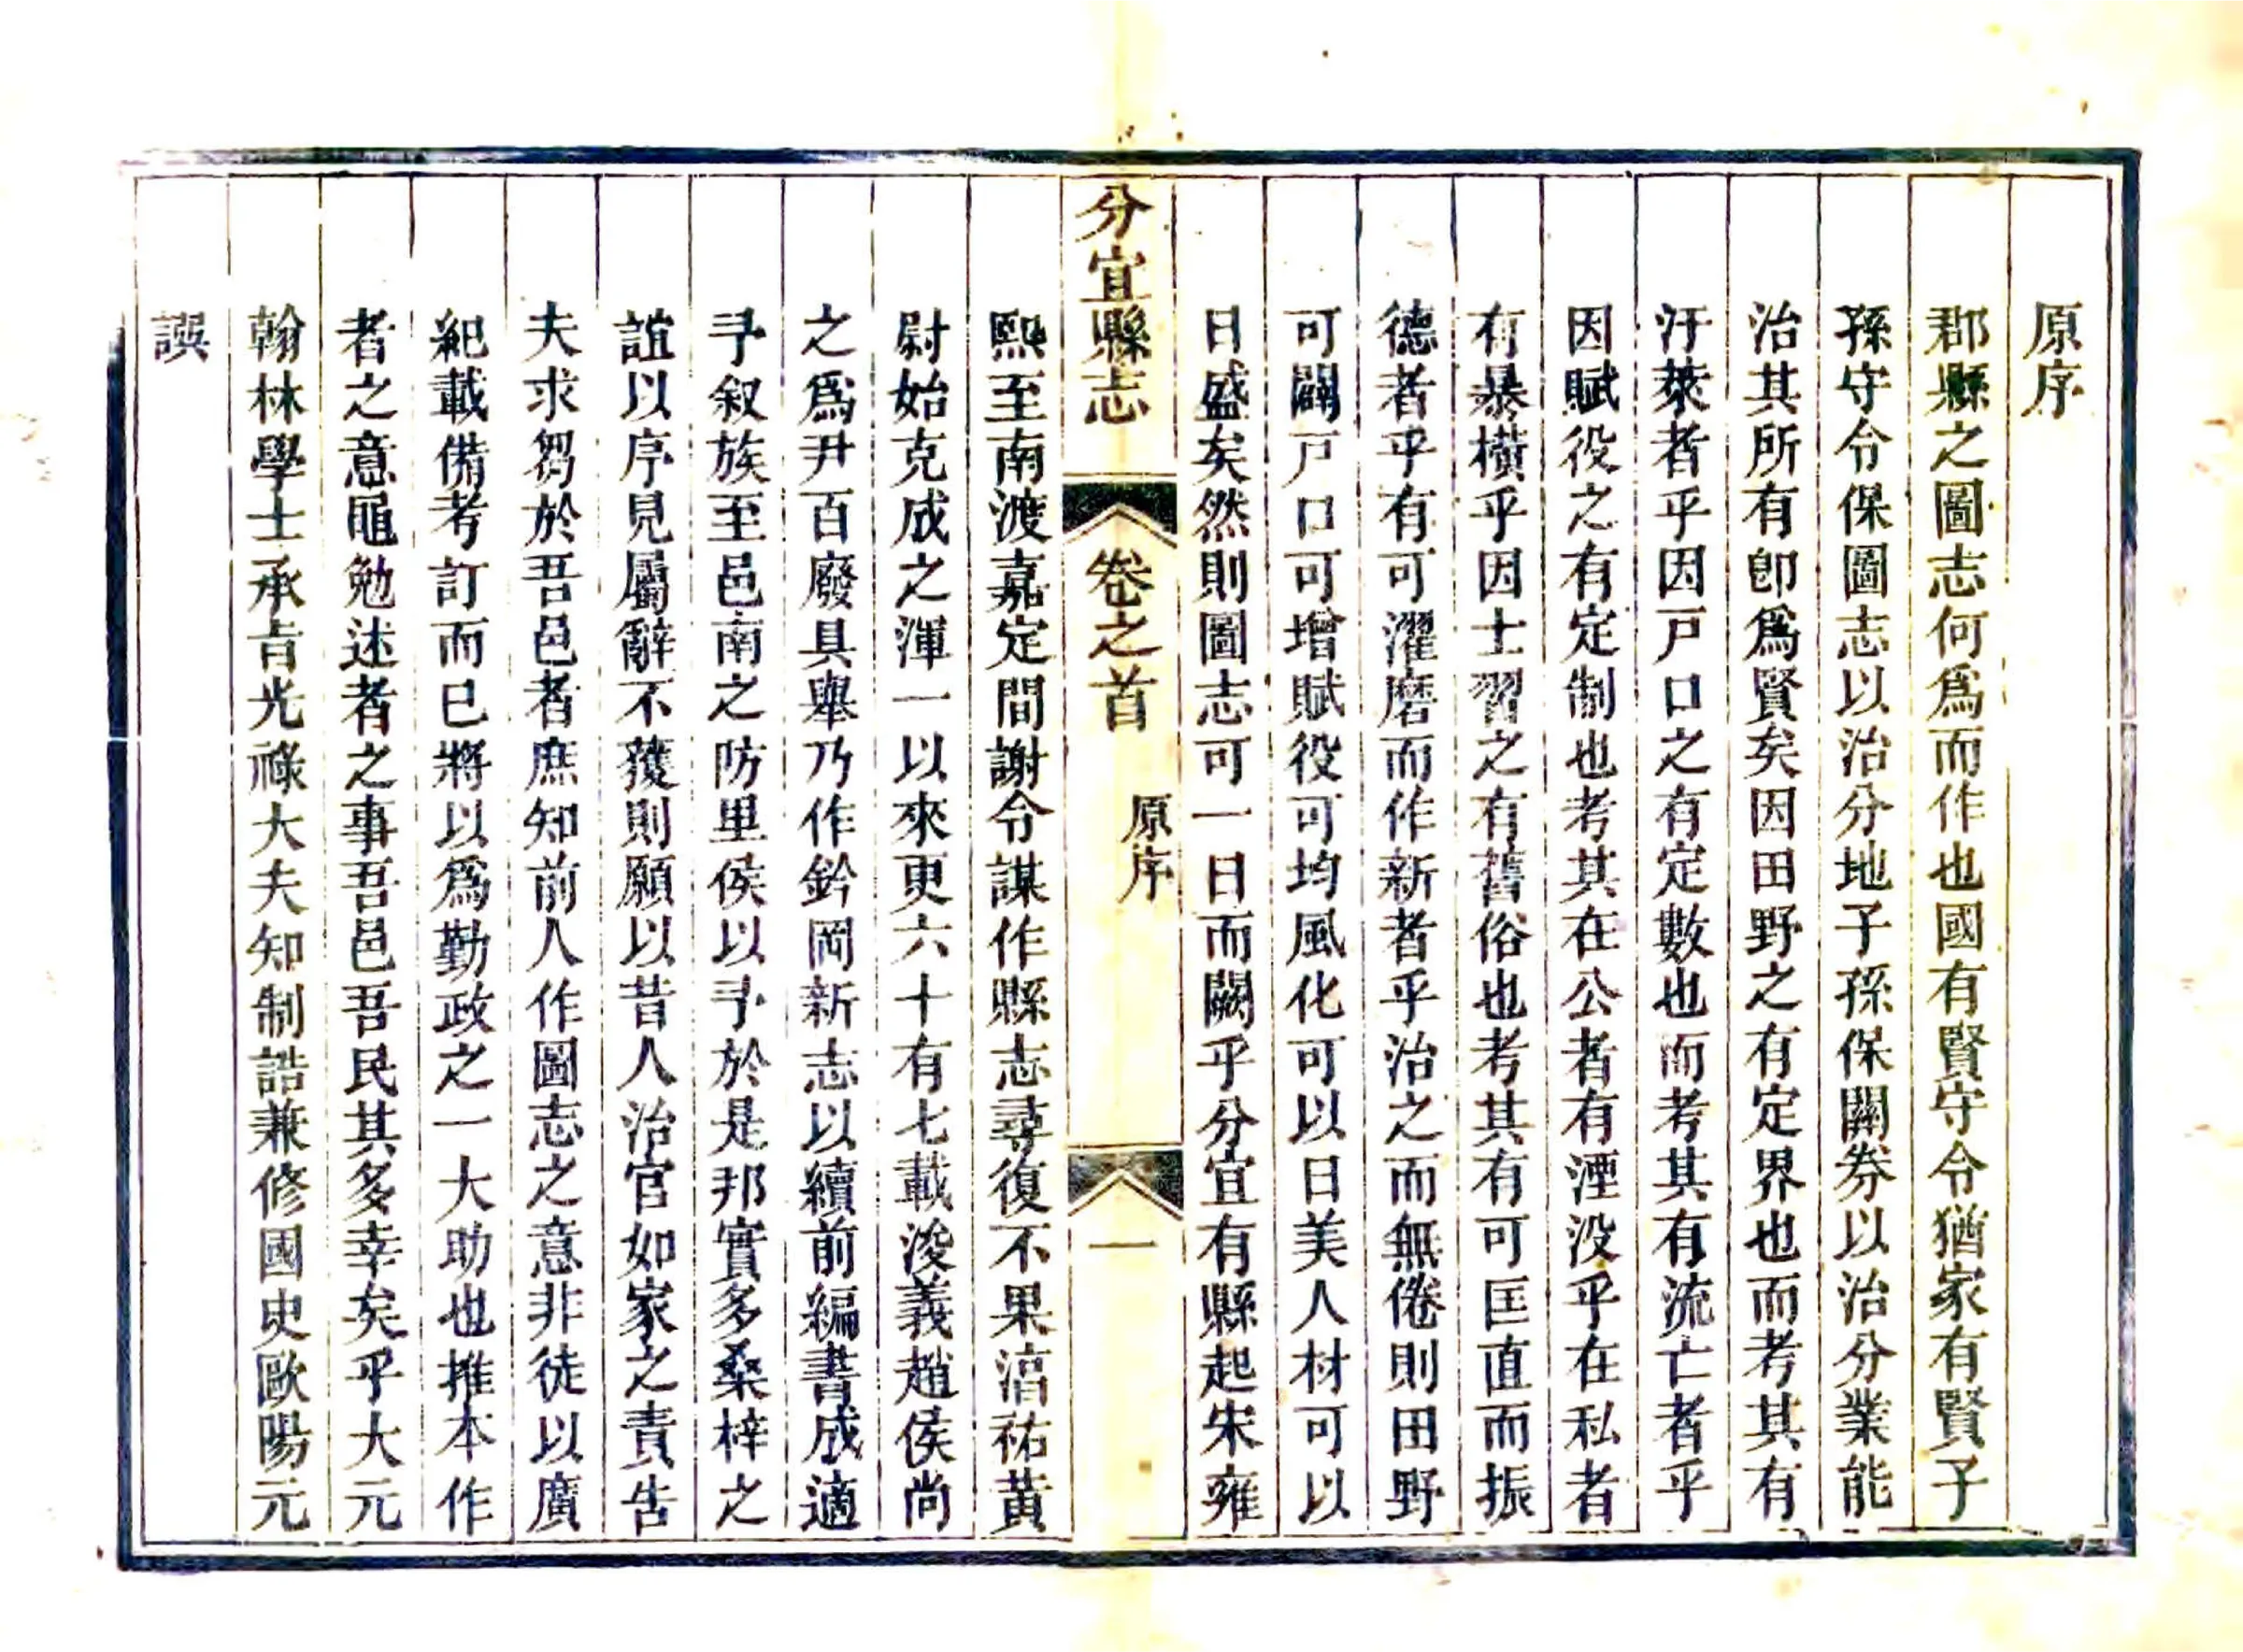 原序
郡縣之圖志何爲而作也國有賢守令猶家有賢子
孫守令保圖志以治分地子孫保關券以治分業能
治其所有卽爲賢矣因田野之有定界也而考其有
汙萊者乎因戸口之有定數也而考其有流亡者乎
因賦役之有定制也考其在公者有湮没乎在私者
有暴橫乎因士習之有舊俗也考其有可匡直而振
德者乎有可濯磨而作新者乎治之而無倦則田野
可闢戸口可增賦役可均風化可以日美人材可以
日盛矣然則圖志可一日而闕乎分宜有縣起宋雍
分宜縣志
卷之首
原序
一
熙至南渡嘉定間謝令謀作縣志尋復不果淳祐黃
尉始克成之渾一以來更六十有七載浚義趙侯尚
之爲尹百廢具舉乃作鈐岡新志以續前編書成適
予叙族至邑南之防里侯以予於是邦實多桑梓之
誼以序見屬辭不獲則願以昔人治官如家之責告
夫求芻於吾邑者庶知前人作圖志之意非徒以廣
紀載備考訂而已將以爲勤政之一大助也推本作
者之意黽勉述者之事吾邑吾民其多幸矣乎大元
翰林學士承旨光祿大夫知制誥兼修國史歐陽元
譔